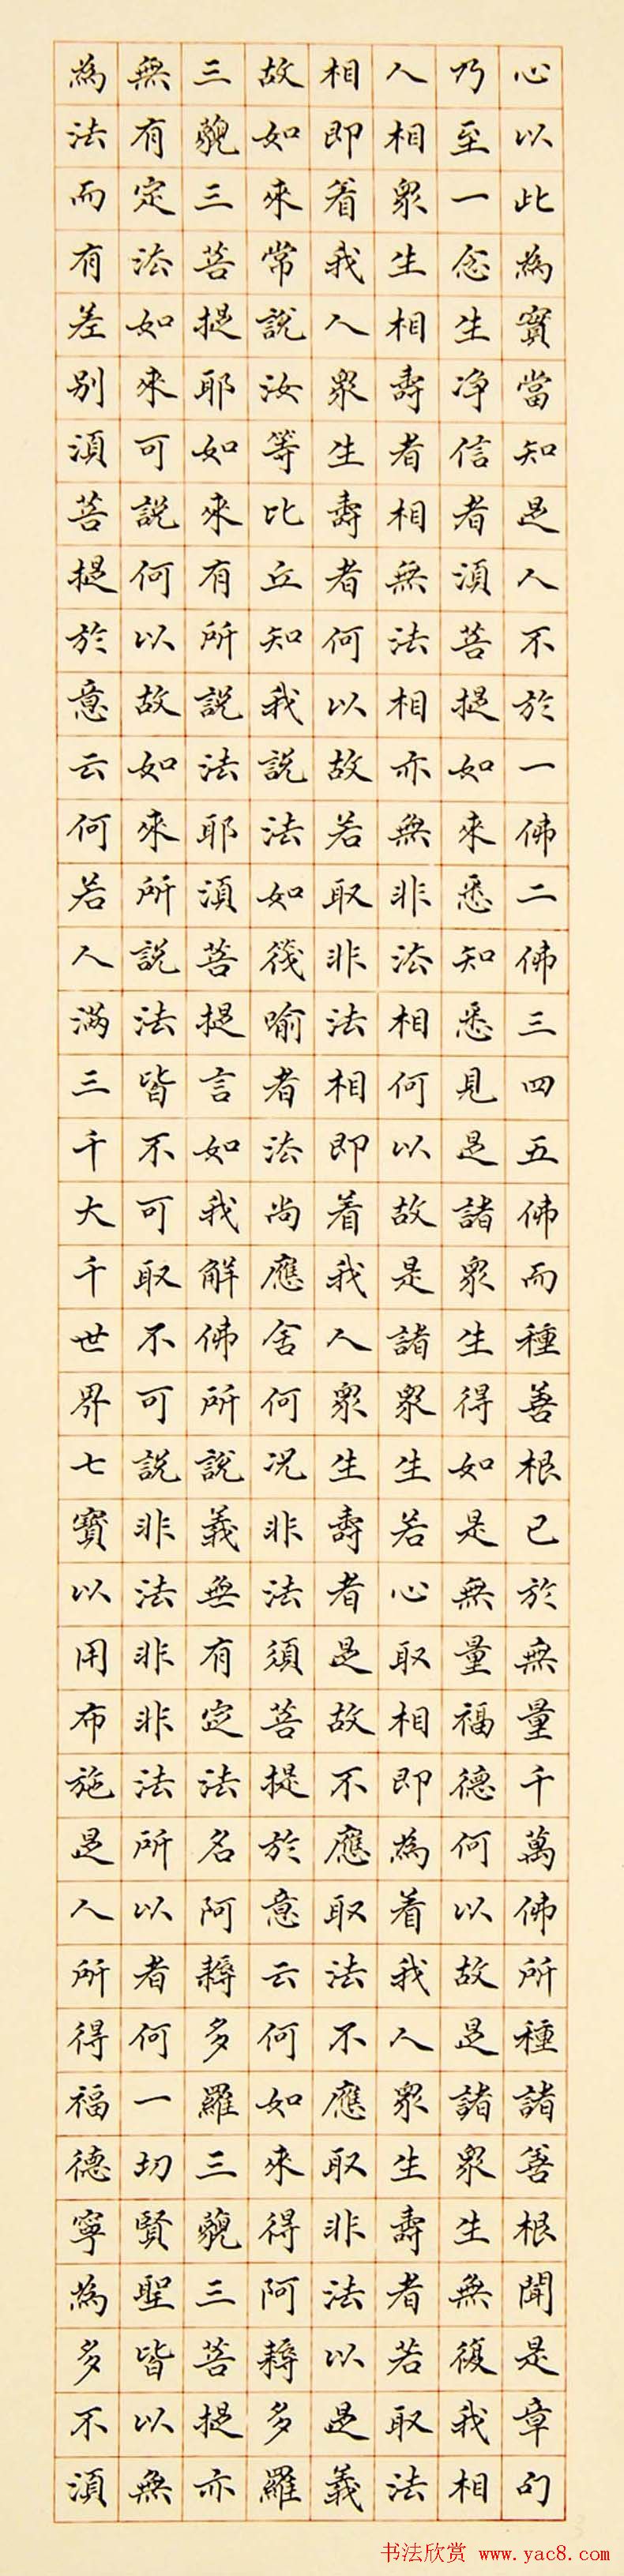 心以此為實當知是人不於一佛二佛三四五佛而種善根已於無量千萬佛所種諸善根聞是章句
乃至一念生净信者湏菩提如來悉知悉見是諸眾生得如是無量福德何以故是諸眾生無復我相
人相眾生相壽者相無法相亦無非法相何以故是諸眾生若心取相即為着我人眾生壽者若取法
相即着我人眾生壽者何以故若取非法相即着我人眾生壽者是故不應取法不應取非法以是義
故如來常說汝等比丘知我說法如筏喻者法尚應舍何况非法須菩提於意云何如來得阿耨多羅
三藐三菩提耶如來有所說法耶湏菩提言如我解佛所說義無有定法名阿耨多羅三藐三菩提亦
無有定法如來可說何以故如來所說法皆不可取不可說非法非非法所以者何一切賢聖皆以無
為法而有差別湏菩提於意云何若人滿三千大千世界七寶以用布施是人所得福德寧為多不湏
书法欣赏 www.yac8.com